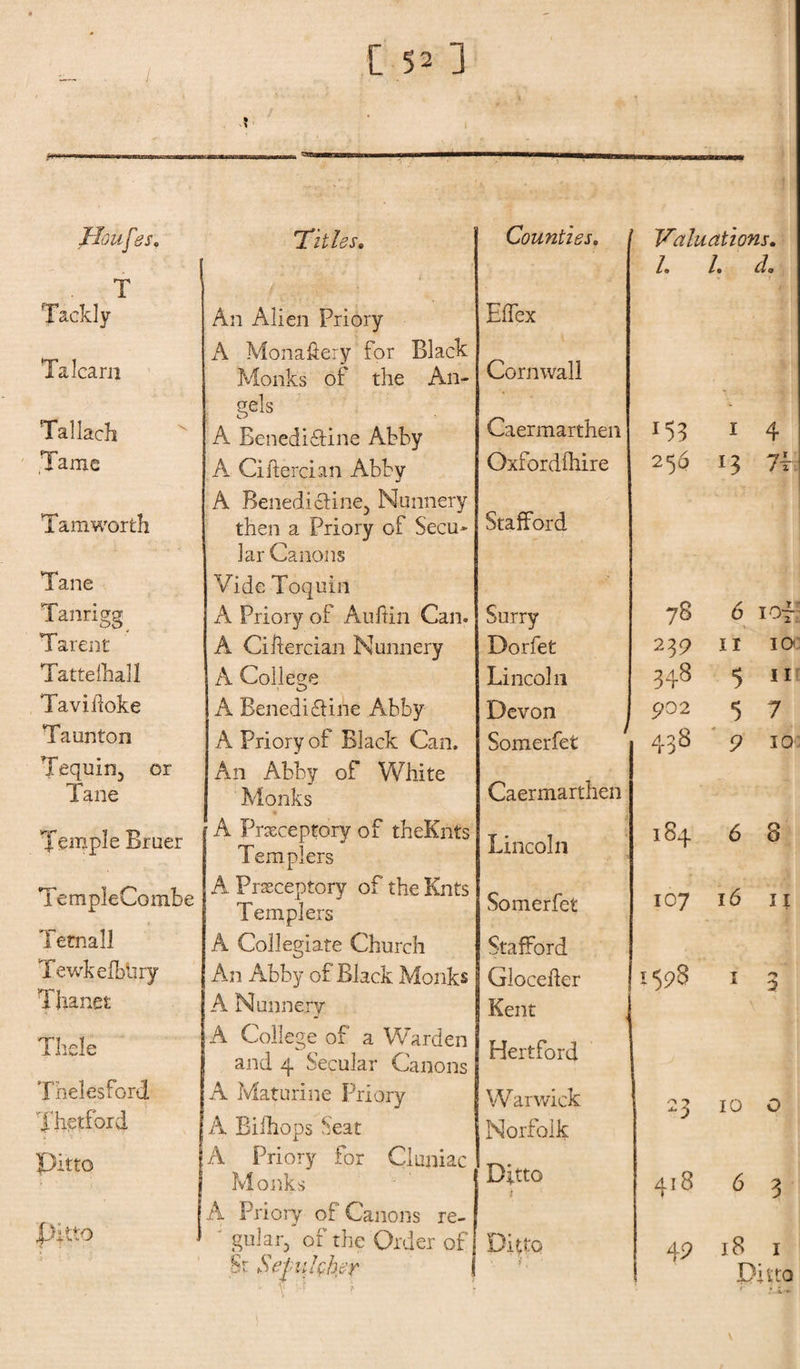 [ 52 ]
Houſes. Titles. Counties. Valuations.
l. l. d.
T
Tackly An Alien Priory Eſſex
Talcarn A Monaſtery for Black Monks of the An-
gels Cornwall
Tallach A Benedictine Abby Caermarthen 153 1 4
Tame A Ciſtercian Abby Oxfordſhire 256 13 7½
Tamworth A Benedictine, Nunnery
then a Priory of Secu-
lar Canons Stafford
Tane Vide Toquin
Tanrigg A Priory of Auſtin Can. Surry 78 6 10½
Tarent A Ciſtercian Nunnery Dorſet 239 11 10
Tatteſhall A College Lincoln 348 5 11
Taviſtoke A Benedictine Abby Devon 902 5 7
Taunton A Priory of Black Can. Somerſet 438 9 10
Tequin, or
Tane An Abby of White
Monks Caermarthen
Temple Bruer A Præceptory of theKnts
Templers Lincoln 184 6 8
TempleCombe A Præceptory of the Knts
Templers Somerſet 107 16 11
Tetnall A Collegiate Church Stafford
Tewkeſbury An Abby of Black Monks Gloceſter 1598 1 3
Thanet A Nunnery Kent
Thele A College of a Warden
and 4 Secular Canons Hertford
Thelesford A Maturine Priory Warwick 23 10 0
Thetford A Biſhops Seat Norfolk
Ditto A Priory for Cluniac
Monks Ditto 418 6 3
Ditto A Priory of Canons re-
gular, of the Order of
St Sepulcher Ditto 49 18 1
Ditto